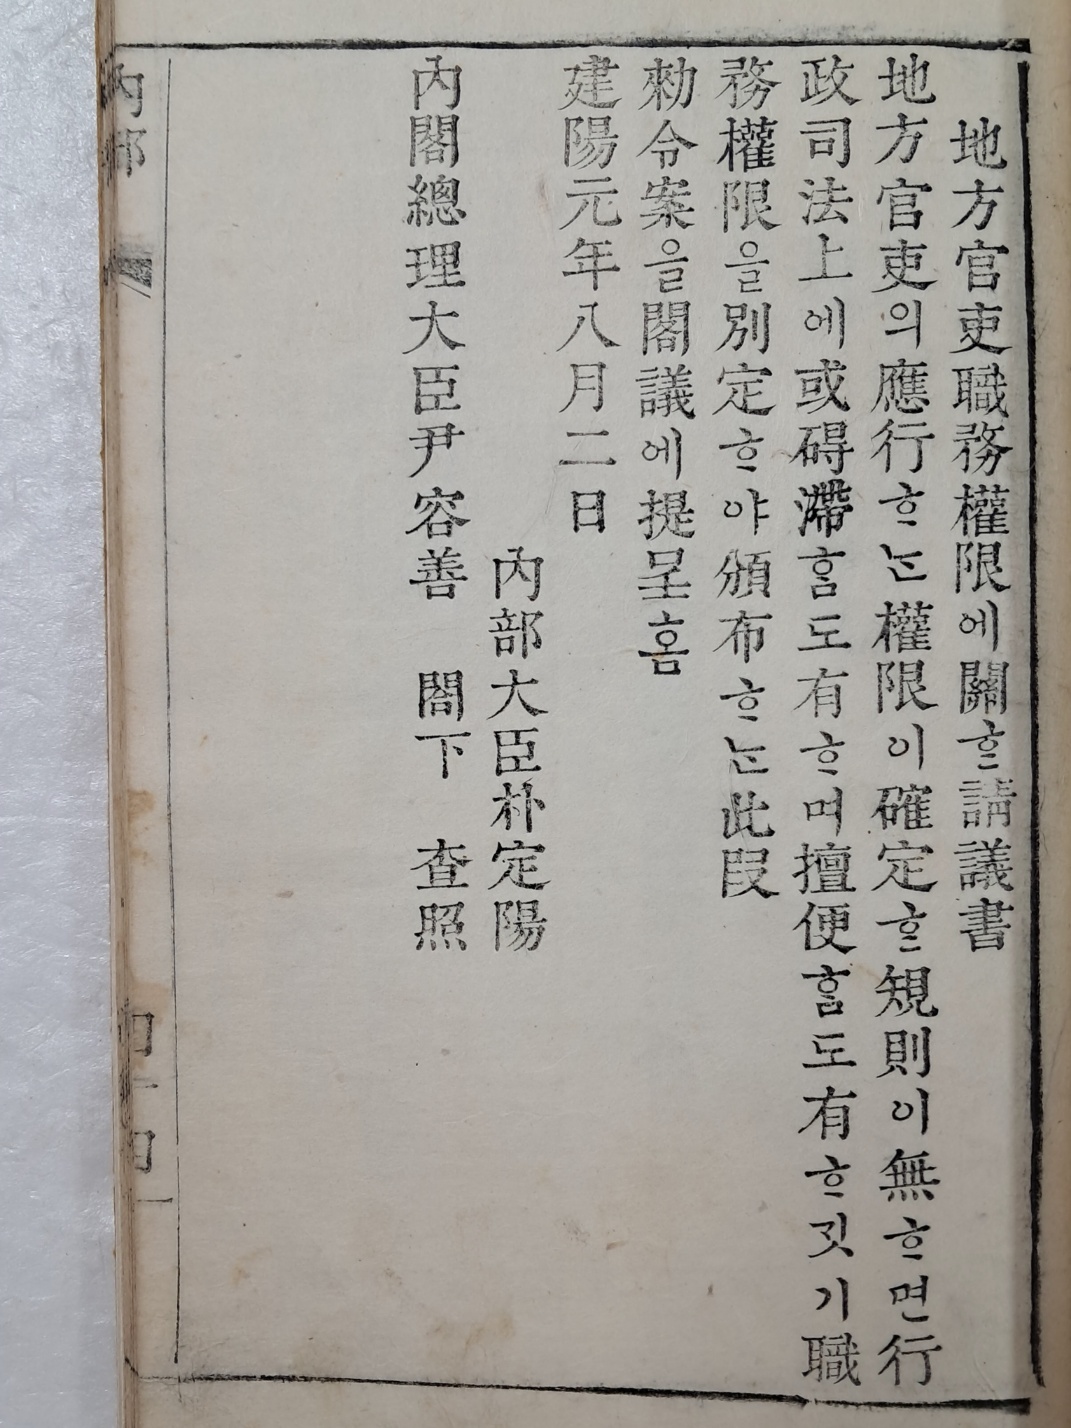 地方官吏職務權限에關ᄒᆞᆫ請議書
地方官吏의應行ᄒᆞᄂᆞᆫ權限이確定ᄒᆞᆫ規則이無ᄒᆞ면行
政司法上에或碍滯ᄒᆞᆷ도有ᄒᆞ며擅便ᄒᆞᆷ도有ᄒᆞ깃기職
務權限을別定ᄒᆞ야頒布ᄒᆞᄂᆞᆫ此段
勅令案을閣議에提呈홈
建陽元年八月二日
內部大臣朴定陽
內閣總理大臣尹容善 閤下 查照
內部